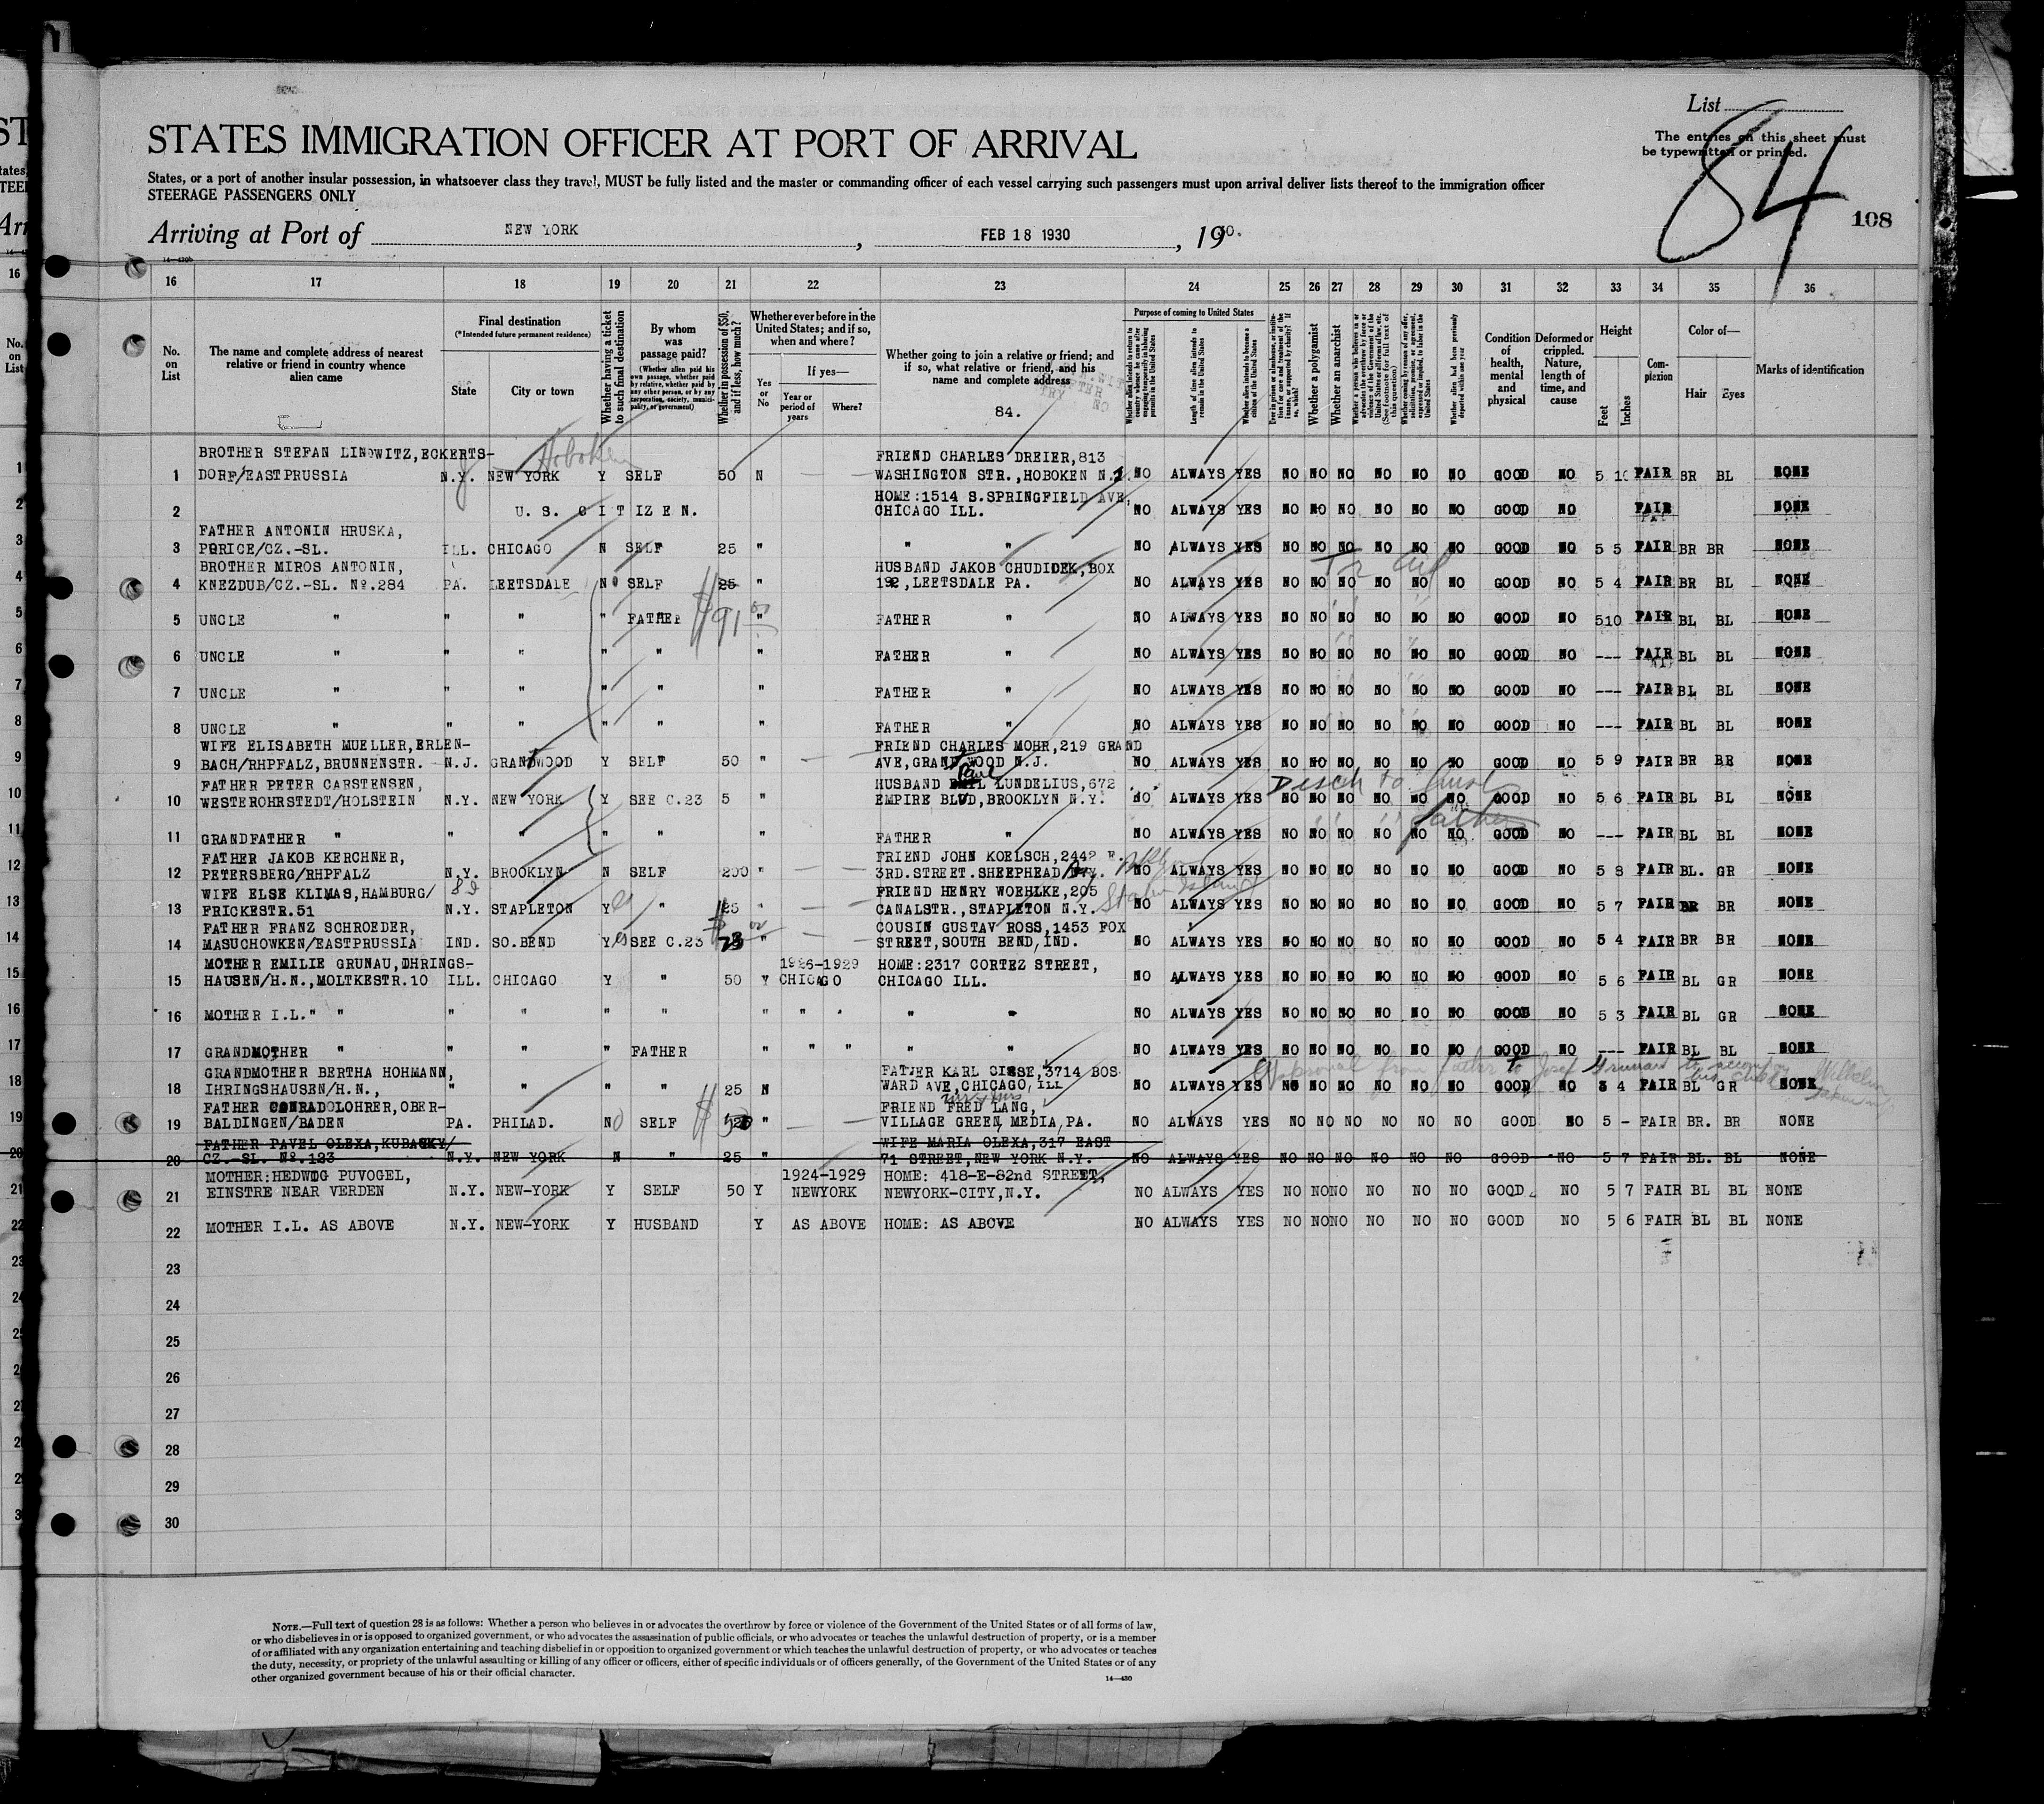 List
The entries on this sheet must
be typewritten or printed.
84
108
STATES IMMIGRATION OFFICER AT PORT OF ARRIVAL
States, or a port of another insular possession, in whatsoever class they travel, MUST be fully listed and the master or commanding officer of each vessel carrying such passengers must upon arrival deliver lists thereof to the immigration officer
STEERAGE PASSENGERS ONLY
Arriving at Port of NEW YORK, FEB 18 1930, 1930.
16 17 18 19 20 21 22 23 24 25 26 27 28 29 30 31 32 33 34 35 36
No. on List
The name and complete address of nearest relative or friend in country whence alien came
Final destination
(*Intended future permanent residence)
State
City or town
Whether having a ticket to such final destination
By whom was passage paid?
(Whether alien paid his own passage, whether paid by relative, whether paid by any other person, or by any corporation, society, municipality, or government)
Whether in possession of $50, and if less, how much?
Whether ever before in the United States; and if so, when and where?
Yes or No
If yes—
Year or period of years
Where?
Whether going to join a relative or friend; and if so, what relative or friend, and his name and complete address
84.
Purpose of coming to United States
Whether alien intends to return to country whence he came after engaging temporarily in laboring pursuits in the United States
Length of time alien intends to remain in the United States
Whether alien intends to become a citizen of the United States
Ever in prison or almshouse, or institution for care and treatment of the insane, or supported by charity? If so, which?
Whether a polygamist
Whether an anarchist
Whether coming by reason of any offer, solicitation, promise, or agreement, expressed or implied, to labor in the United States
Whether alien had been previously deported within one year
Condition of health, mental and physical
Deformed or crippled. Nature, length of time, and cause
Height
Feet
Inches
Complexion
Color of—
Hair
Eyes
Marks of identification
BROTHER STEFAN LINOWITZ,ECKERTS- Hoboken FRIEND CHARLES DREIER,813
1 DORF/EASTPRUSSIA N.Y. NEW YORK Y SELF 50 N WASHINGTON STR.,HOBOKEN N.J. NO ALWAYS YES NO NO NO NO NO NO GOOD NO 5 10 FAIR BR BL NONE
HOME:1514 S.SPRINGFIELD AVE,
2 U. S. CITIZEN. CHICAGO ILL. NO ALWAYS YES NO NO NO NO NO NO GOOD NO FAIR NONE
FATHER ANTONIN HRUSKA,
3 CZ.-SL. ILL. CHICAGO N SELF 25 " " " NO ALWAYS YES NO NO NO NO NO NO GOOD NO 5 5 FAIR BR BR NONE
BROTHER MIROS ANTONIN, HUSBAND JAKOB CHUDICEK,BOX
4 KNEZDUB/CZ.-SL. No.284 PA. LEETSDALE NO SELF 25 " 192,LEETSDALE PA. NO ALWAYS YES NO NO NO NO NO NO GOOD NO 5 4 FAIR BR BL NONE
5 UNCLE " " " " FATHER $91 00 " FATHER " NO ALWAYS YES NO NO NO NO NO NO GOOD NO 510 FAIR BL BL NONE
6 UNCLE " " " " " " FATHER " NO ALWAYS YES NO NO NO NO NO NO GOOD NO --- FAIR BL BL NONE
7 UNCLE " " " " " " FATHER " NO ALWAYS YES NO NO NO NO NO NO GOOD NO --- FAIR BL BL NONE
8 UNCLE " " " " " " FATHER " NO ALWAYS YES NO NO NO NO NO NO GOOD NO --- FAIR BL BL NONE
WIFE ELISABETH MUELLER,ERLEN- FRIEND CHARLES MOHR,219 GRAND
9 BACH/RHPFALZ,BRUNNENSTR. N.J. GRANDWOOD Y SELF 50 " AVE,GRANDWOOD N.J. NO ALWAYS YES NO NO NO NO NO NO GOOD NO 5 9 FAIR BR BR NONE
FATHER PETER CARSTENSEN, HUSBAND Paul LUNDELIUS,672 Disch to husb
10 WESTEROHRSTEDT/HOLSTEIN N.Y. NEW YORK Y SEE C.23 5 " EMPIRE BLVD,BROOKLYN N.Y. NO ALWAYS YES NO NO NO NO NO NO GOOD NO 5 6 FAIR BL BL NONE
father
11 GRANDFATHER " " " " " " FATHER " NO ALWAYS YES NO NO NO NO NO NO GOOD NO --- FAIR BL BL NONE
FATHER JAKOB KERCHNER, FRIEND JOHN KOELSCH,2442 E.
12 PETERSBERG/RHPFALZ N.Y. BROOKLYN N SELF 200 " 3RD.STREET.SHEEPHEAD Bay. NO ALWAYS YES NO NO NO NO NO NO GOOD NO 5 8 FAIR BL. GR NONE
WIFE ELSE KLIMAS,HAMBURG/ FRIEND HENRY WOEHLKE,205 Staten Island
13 FRICKESTR.51 N.Y. STAPLETON Yes " 25 " CANALSTR.,STAPLETON N.Y. NO ALWAYS YES NO NO NO NO NO NO GOOD NO 5 7 FAIR BR BR NONE
FATHER FRANZ SCHROEDER, COUSIN GUSTAV ROSS,1453 FOX
14 MASUCHOWKEN/EASTPRUSSIA IND. SO.BEND Yes SEE C.23 " STREET,SOUTH BEND,IND. NO ALWAYS YES NO NO NO NO NO NO GOOD NO 5 4 FAIR BR BR NONE
MOTHER EMILIE GRUNAU,IHRINGS- 1926-1929 HOME:2317 CORTEZ STREET,
15 HAUSEN/H.N.,MOLTKESTR.10 ILL. CHICAGO Y " 50 Y CHICAGO CHICAGO ILL. NO ALWAYS YES NO NO NO NO NO NO GOOD NO 5 6 FAIR BL GR NONE
16 MOTHER I.L." " " " " " " " " " " NO ALWAYS YES NO NO NO NO NO NO GOOD NO 5 3 FAIR BL GR NONE
17 GRANDMOTHER " " " " FATHER " " " " " NO ALWAYS YES NO NO NO NO NO NO GOOD NO --- FAIR BL BL NONE
GRANDMOTHER BERTHA HOHMANN, FATHER KARL CISSE,3714 BOS Approval from father to Josef Grunau to accompany Wilhelm
18 IHRINGSHAUSEN/H.N., " " " " 25 N WARD AVE,CHICAGO,ILL NO ALWAYS YES NO NO NO NO NO NO GOOD NO 3 4 FAIR BL GR NONE
FATHER CONRAD LOHRER,OBER- FRIEND FRED LANG,
19 BALDINGEN/BADEN PA. PHILAD. NO SELF " VILLAGE GREEN,MEDIA,PA. NO ALWAYS YES NO NO NO NO NO NO GOOD NO 5 - FAIR BR. BR NONE
FATHER PAVEL OLEXA,KUBACKY/ WIFE MARIA OLEXA,317 EAST
20 CZ.-SL. No.123 N.Y. NEW YORK N " 25 " 71 STREET,NEW YORK N.Y. NO ALWAYS YES NO NO NO NO NO NO GOOD NO 5 7 FAIR BL. BL NONE
MOTHER:HEDWIG PUVOGEL, 1924-1929 HOME: 418-E-82nd STREET,
21 EINSTRE NEAR VERDEN N.Y. NEW-YORK Y SELF 50 Y NEWYORK NEWYORK-CITY,N.Y. NO ALWAYS YES NO NO NO NO NO NO GOOD NO 5 7 FAIR BL BL NONE
22 MOTHER I.L. AS ABOVE N.Y. NEW-YORK Y HUSBAND Y AS ABOVE HOME: AS ABOVE NO ALWAYS YES NO NO NO NO NO NO GOOD NO 5 6 FAIR BL BL NONE
23
24
25
26
27
28
29
30
NOTE.—Full text of question 28 is as follows: Whether a person who believes in or advocates the overthrow by force or violence of the Government of the United States or of all forms of law,
or who disbelieves in or is opposed to organized government, or who advocates the assassination of public officials, or who advocates or teaches the unlawful destruction of property, or is a member
of or affiliated with any organization entertaining and teaching disbelief in or opposition to organized government or which teaches the unlawful destruction of property, or who advocates or teaches
the duty, necessity, or propriety of the unlawful assaulting or killing of any officer or officers, either of specific individuals or of officers generally, of the Government of the United States or of any
other organized government because of his or their official character.
14—430